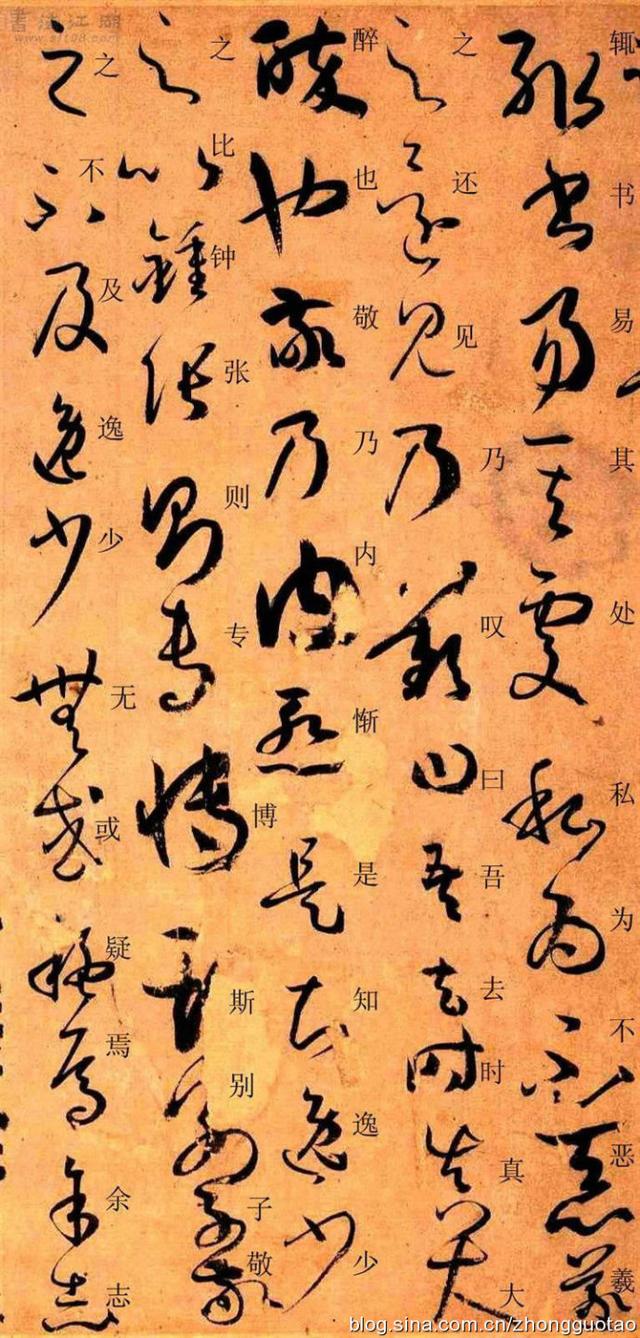 書法江湖
辄书易其处私为不恶羲
之还见乃叹曰吾去时真大
醉也敬乃内惭是知逸少
之比钟张则专博斯别子敬
之不及逸少无或疑焉余志
blog.sina.com.cn/zhongguotao